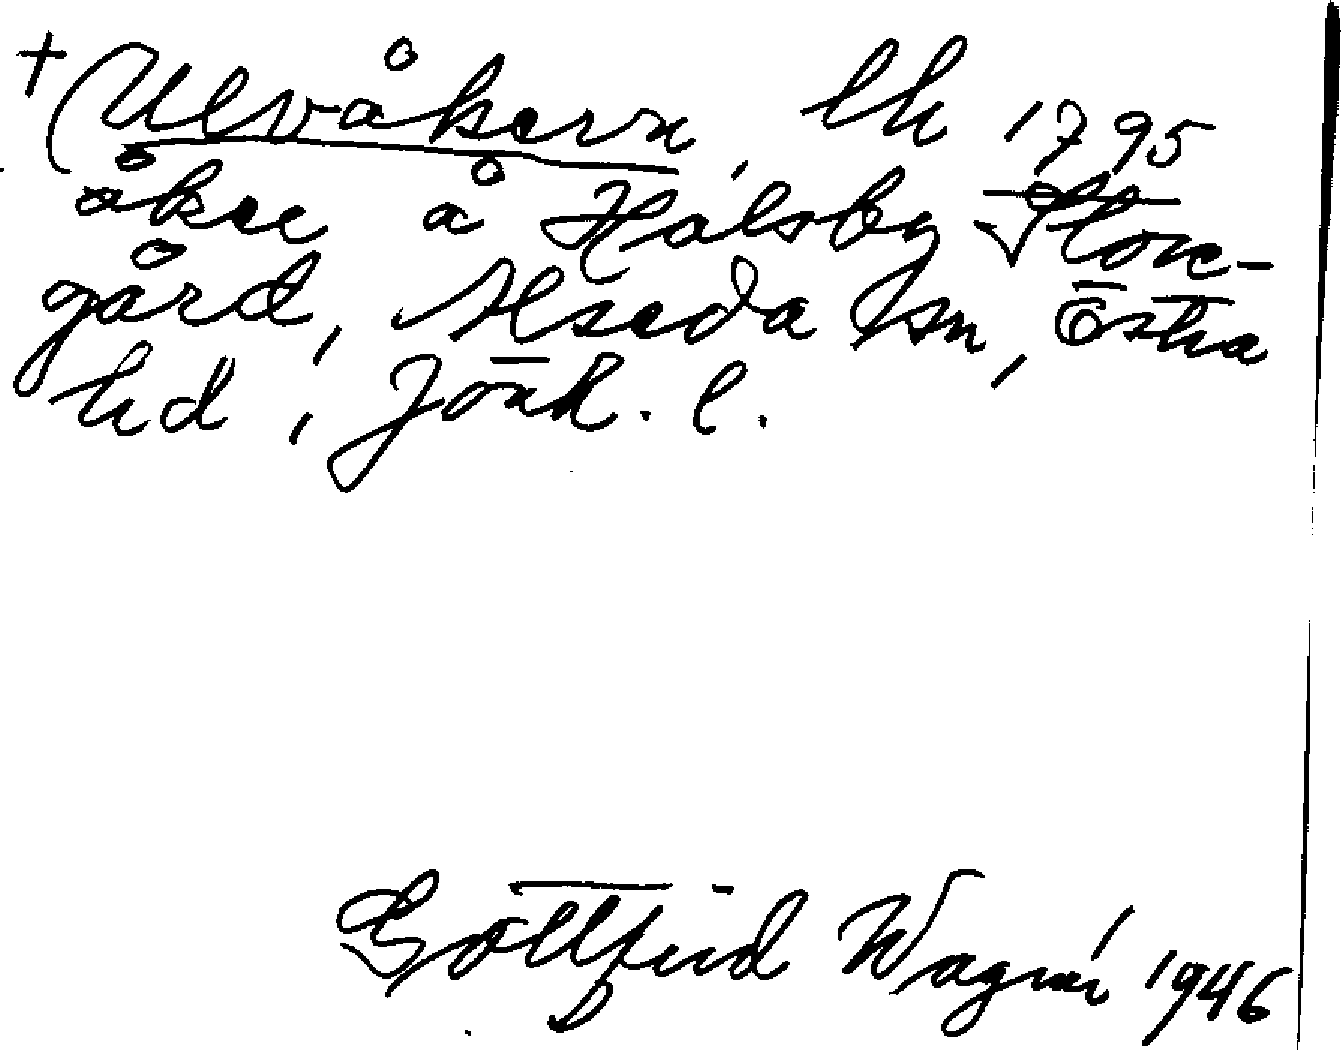 † Ulvåkern, lh 1795
åker å Hálsby Store-
gård, Alseda sn, Östra
hd, Jönk. l.
Gottfrid Wagnér 1946